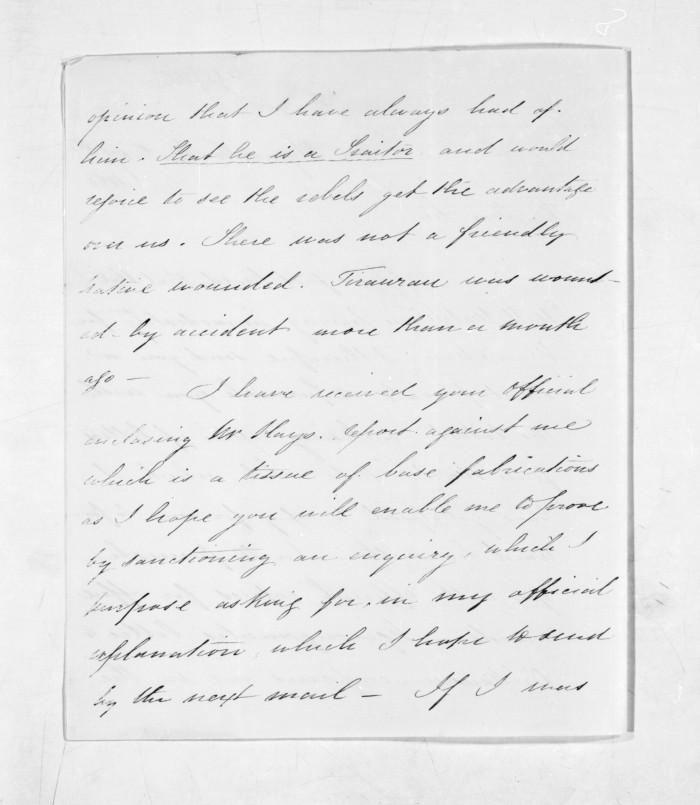 opinion that I have always had of
him. That he is a Traitor and would
rejoice to see the rebels get the advantage
over us. There was not a friendly
native wounded. was wound-
ed - by accident more than a month
ago -
I have received your official
enclosing Mr Hays. report against me
which is a tissue of base fabrications
as I hope you will enable me to prove
by sanctioning an enquiry, which I
purpose asking for, in my official
explanation, which I hope to send
by the next mail - If I was